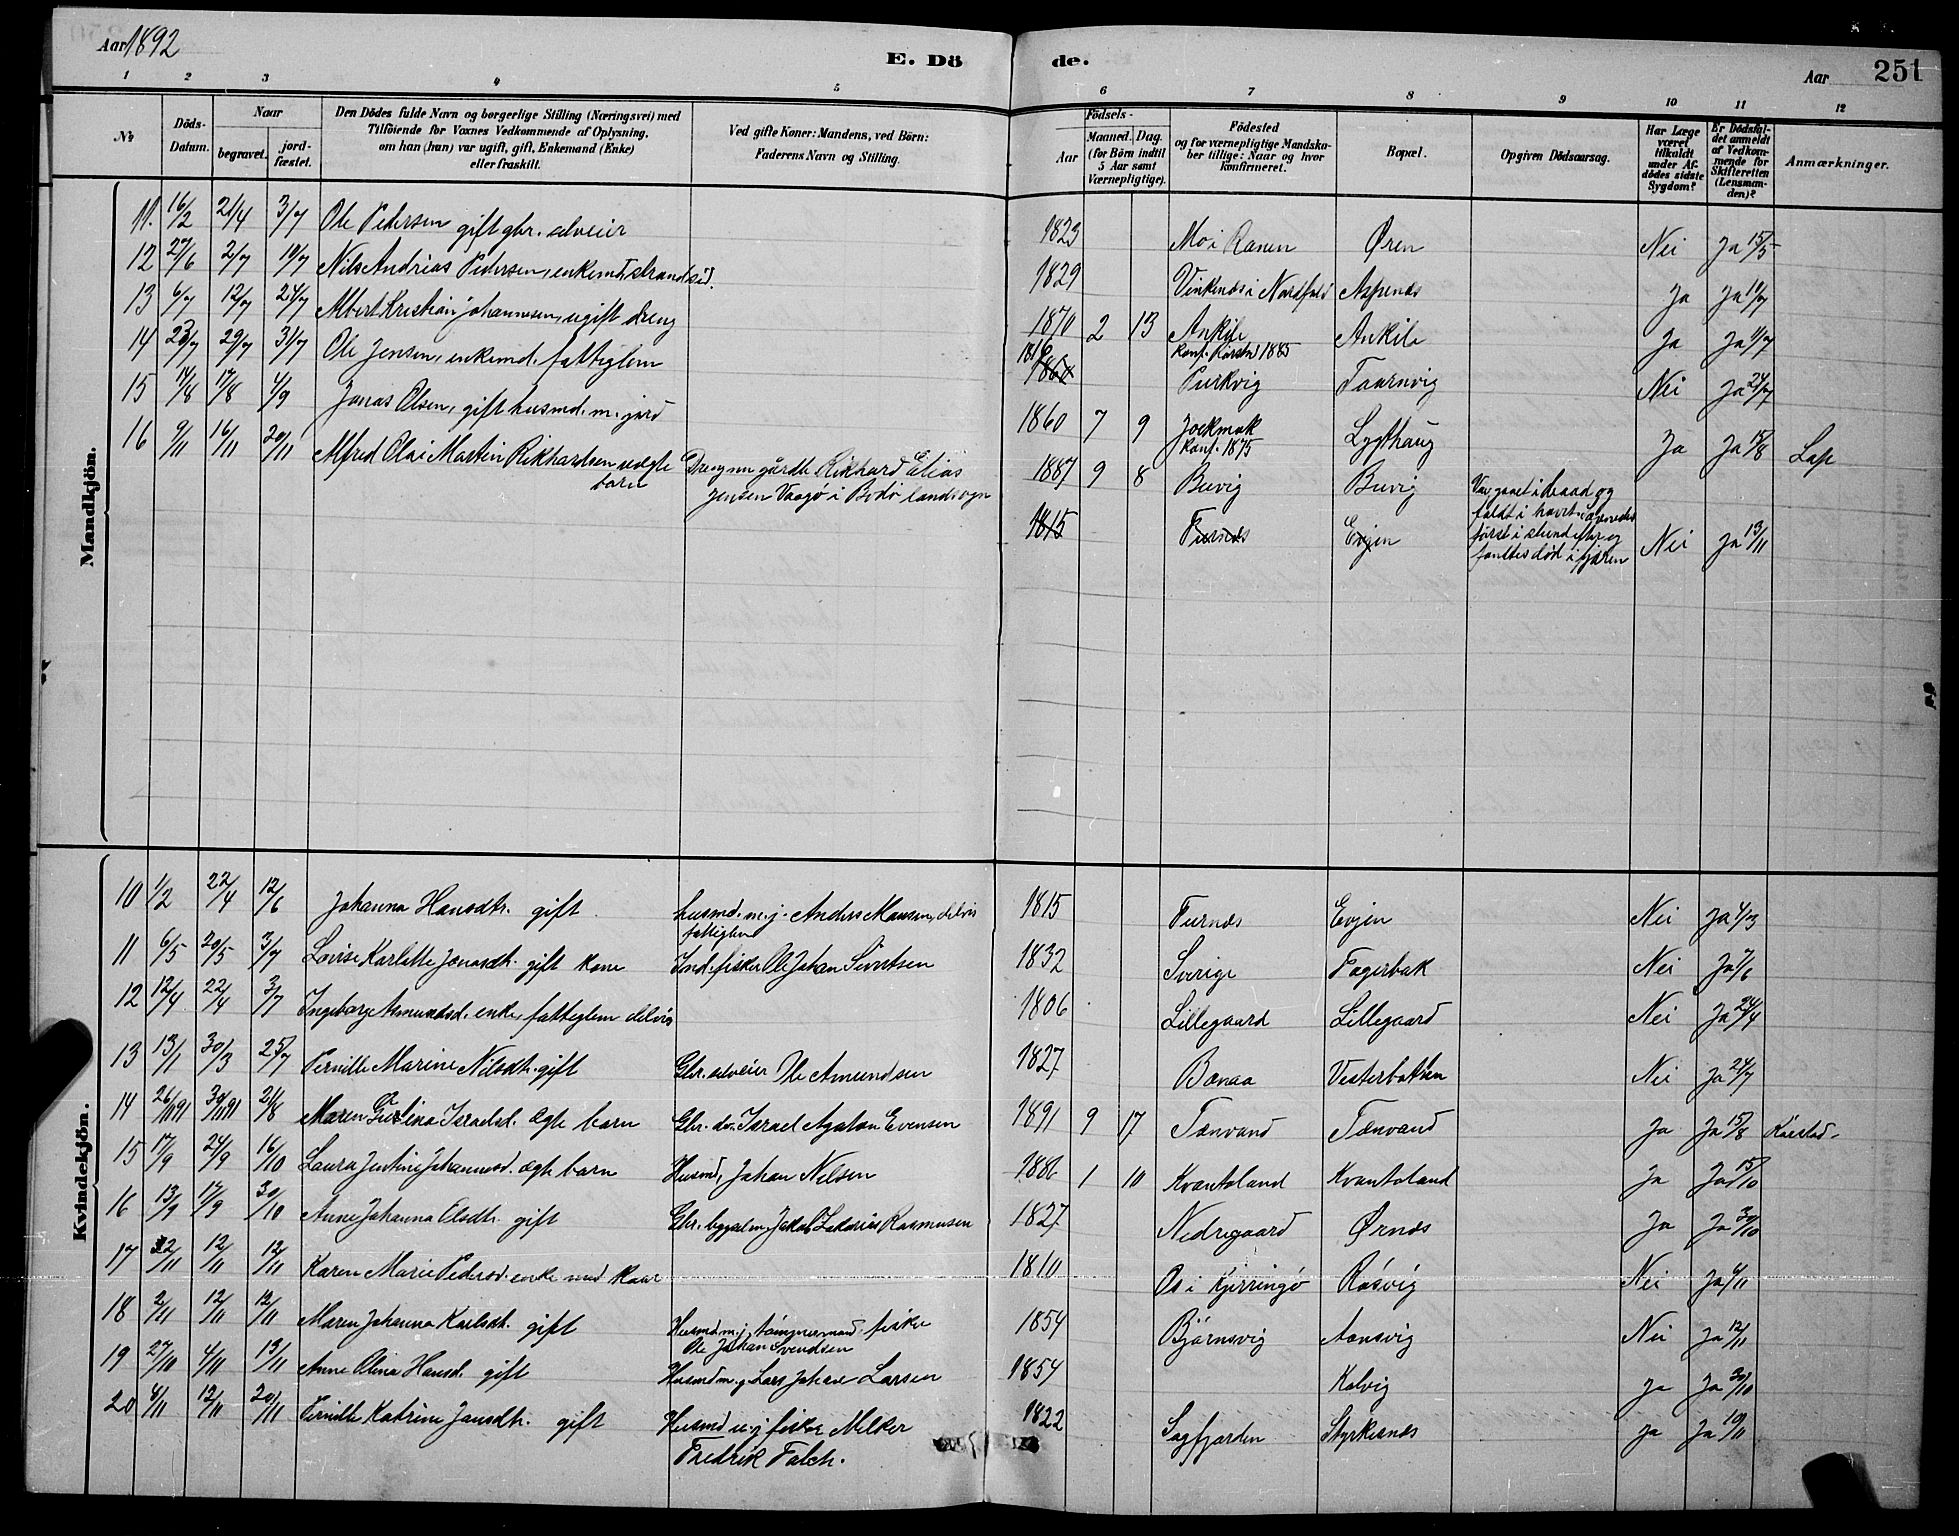 Aar 1892
E. Dö
de.
Aar 251
1 2 3 4 5 6 7 8 9 10 11 12
№
Döds-
Datum.
Naar
begravet.
jord-
fæstet.
Den Dödes fulde Navn og borgerlige Stilling (Næringsvei) med
Tilföiende for Voxnes Vedkommende af Oplysning,
om han (hun) var ugift, gift, Enkemand (Enke)
eller fraskilt.
Ved gifte Koner: Mandens, ved Börn:
Faderens Navn og Stilling.
Födsels-
Aar
Maaned. Dag.
(for Börn indtil
5 Aar samt
Værnepligtige).
Födested
og for værnepligtige Mandska-
ber tillige: Naar og hvor
konfirmeret.
Bopæl.
Opgiven Dödsaarsag.
Har Læge
været
tilkaldt
under Af-
dödes sidste
Sygdom?
Er Dödsfal-
det anmeldt
af Vedkom-
mende for
Skifteretten
(Lensman-
den)?
Anmærkninger.
Mandkjön.
11. 16/2 21/4 3/7 Ole Pedersen gift gbr. selveier 1823 Mo i Ranen Øren Nei Ja 15/5
12 27/6 2/7 10/7 Nils Andrias Pedersen, enkemd. strandsid. 1829 Vinkenes i Nordfold Aspenes Ja Ja 10/7
13 6/7 12/7 24/7 Albert Kristian Johannesen, ugift dreng 1870 2 13 Ankile Ankile Ja Ja 11/7
konf. Kårstad 1885
14 23/7 29/7 31/7 Ole Jensen, enkemd. fattiglem 1816 1860 Purkvig Taarnvig Nei Ja 24/7
15 14/8 17/8 4/9 Jonas Olsen, gift husmd. m. jord 1860 7 9 Jockmok Lygthaug Ja Ja 15/8 Lap
konf. 1875
16 9/11 16/11 20/11 Alfred Olai Martin Rikhardsen uægte Dreng Rikhard Elias 1887 9 8 Buvig Buvig
barn Jensen Vaagø i Bodø landsogn
1815 Furnes Evjen Nei Ja 13/11
faldt i havet
død i fjæren
Kvindekjön.
10 1/2 22/4 12/6 Johanna Hansdtr. gift husmd. m. j. Anders Monsen, delvis 1815 Furnes Evjen Nei Ja 4/3
fattiglem
11 6/5 20/5 3/7 Lovise Karlotte Jonasdt. gift kone Ind. fisker Ole Johan Sivertsen 1832 Sverige Fagerbak Nei Ja 7/6
12 12/4 22/4 3/7 Ingeborg Asmundsd. enke, fattiglem delvis 1806 Lillegaard Lillegaard Nei Ja 24/4
13 13/1 30/3 25/7 Pernille Marine Nilsdtr. gift Gbr. selveier Ole Amundsen 1827 Bonaa Vesterbotten Nei Ja 24/7
14 26/11 91 30/11 91 21/8 Maren Israelsd. ægte barn Gbr. do. Israel Agaton Evensen 1891 9 17 Tønvand Tønvand Ja Ja 15/8 Kårstad
15 17/9 24/9 16/10 Laura Jentine Johannesd. ægte barn Husmd, Johan Nilsen 1886 1 10 Kvantoland Kvantoland Ja Ja 15/10
16 13/9 17/9 30/10 Anne Johanna Olsdtr. gift Gbr. bygselm. Jakob Zakarias Rasmusen 1827 Nedregaard Ørnes Ja Ja 30/10
17 2/11 12/11 12/11 Karen Marie Pedersd. enke med kaar 1810 Os i Kjerringø Røsvig Nei Ja 4/11
18 2/11 12/11 12/11 Maren Johanna Karlsdtr. gift Husmd m. j. tømmermand. fisker 1854 Bjørnsvig Aonsvig Nei Ja 12/11
Ole Johan Svendsen
19 27/10 4/11 13/11 Anne Olina Hansd. gift Husmd m. j Lars Johan Larsen 1854 Kalvig Ja Ja 30/10
20 4/11 12/11 20/11 Pernille Katrine Jansdtr. gift Husmd u. j fisker Melker 1822 Sagfjorden Styrkesnes Ja Ja 10/11
Fredrik Falch.